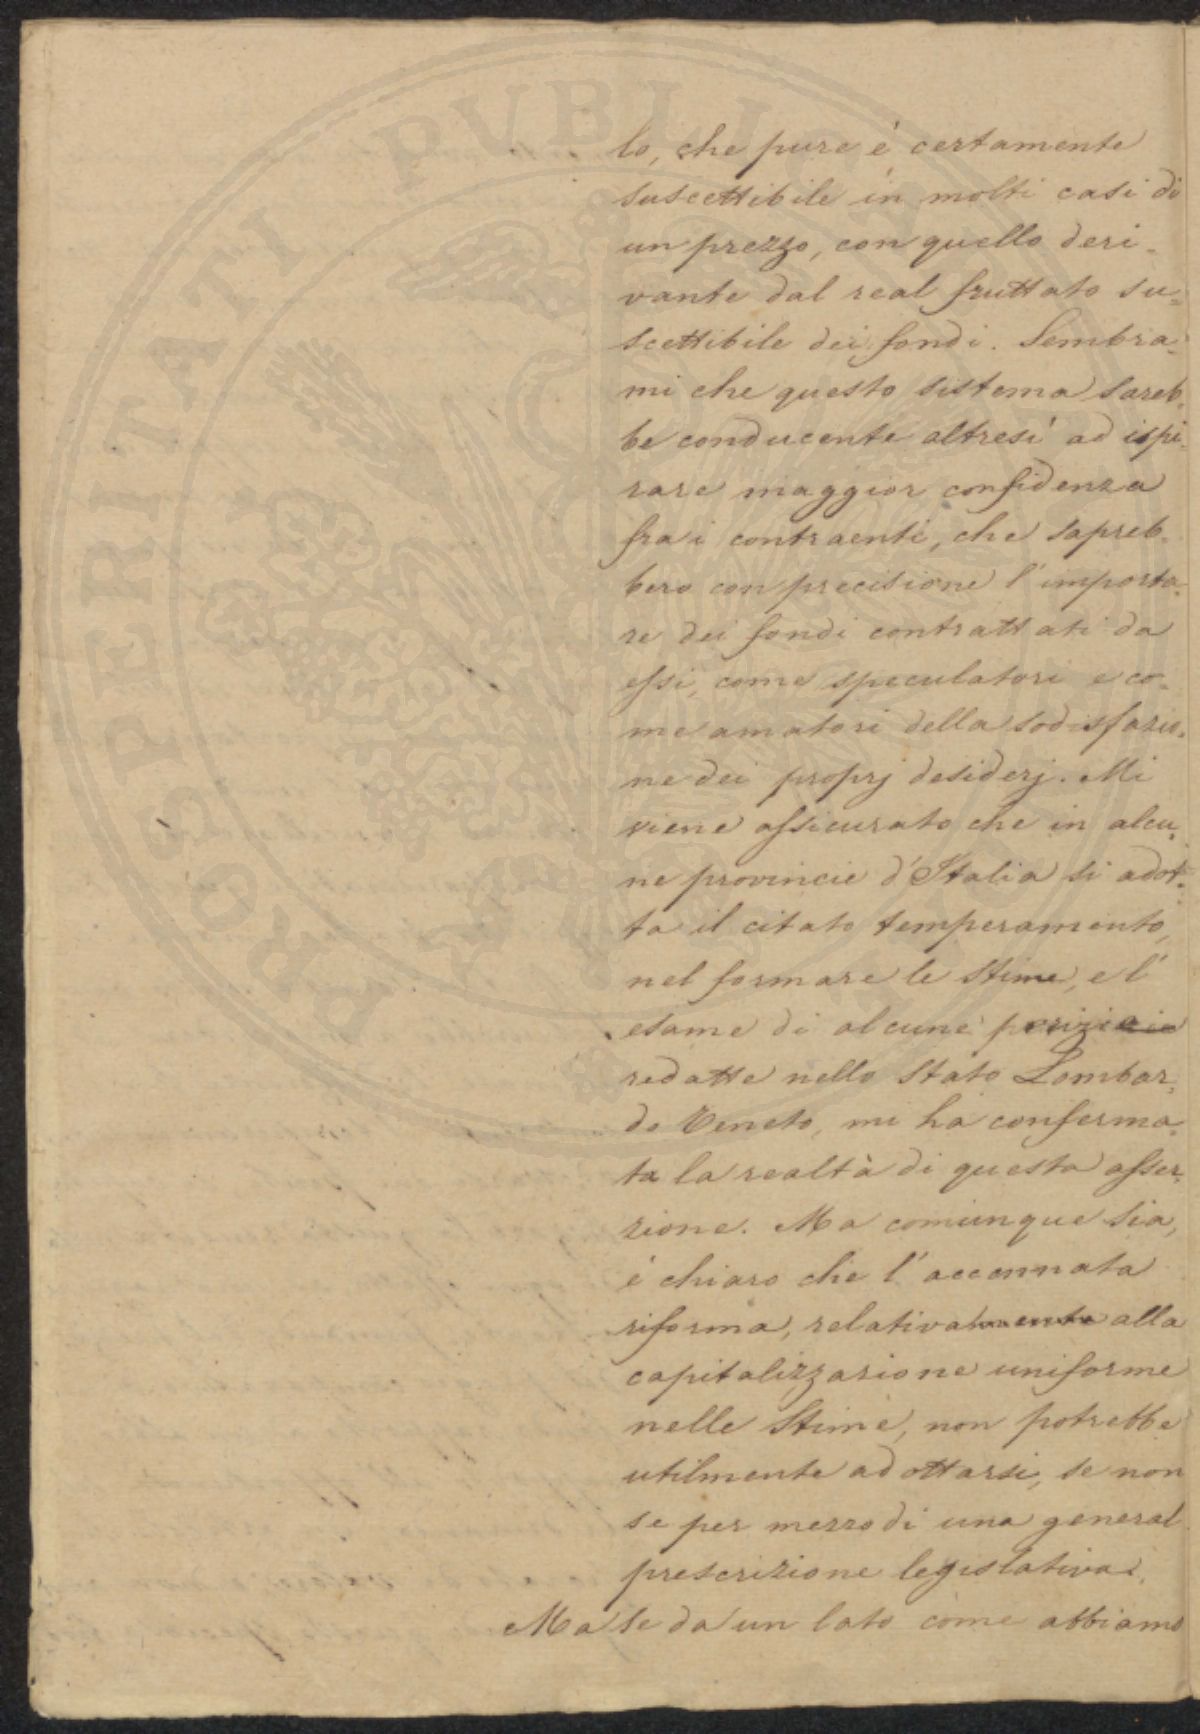 lo, che pure è certamente
suscettibile in molti casi di
un prezzo, con quello deri-
vante dal real fruttato su-
scettibile dei fondi. Sembra-
mi che questo sistema sareb-
be conducente altresì ad ispi-
rare maggior confidenza
fra i contraenti, che sapreb-
bero con precisione l'importa-
re dei fondi contrattati da
essi, come speculatori e co-
me amatori della sodisfazio-
ne dei proprj desiderj. Mi
viene assicurato che in alcu-
ne provincie d'Italia si adot-
ta il citato temperamento,
nel formare le stime, e l'
esame di alcune perizie
redatte nello Stato Lombar-
do Veneto, mi ha conferma-
ta la realtà di questa asser-
zione. Ma comunque sia,
è chiaro che l'accennata
riforma, relativamente alla
capitalizzazione uniforme
nelle Stime, non potrebbe
utilmente adottarsi, se non
se per mezzo di una general
prescrizione legislativa.
Ma se da un lato come abbiamo
PROSPERITATI PUBLICAE